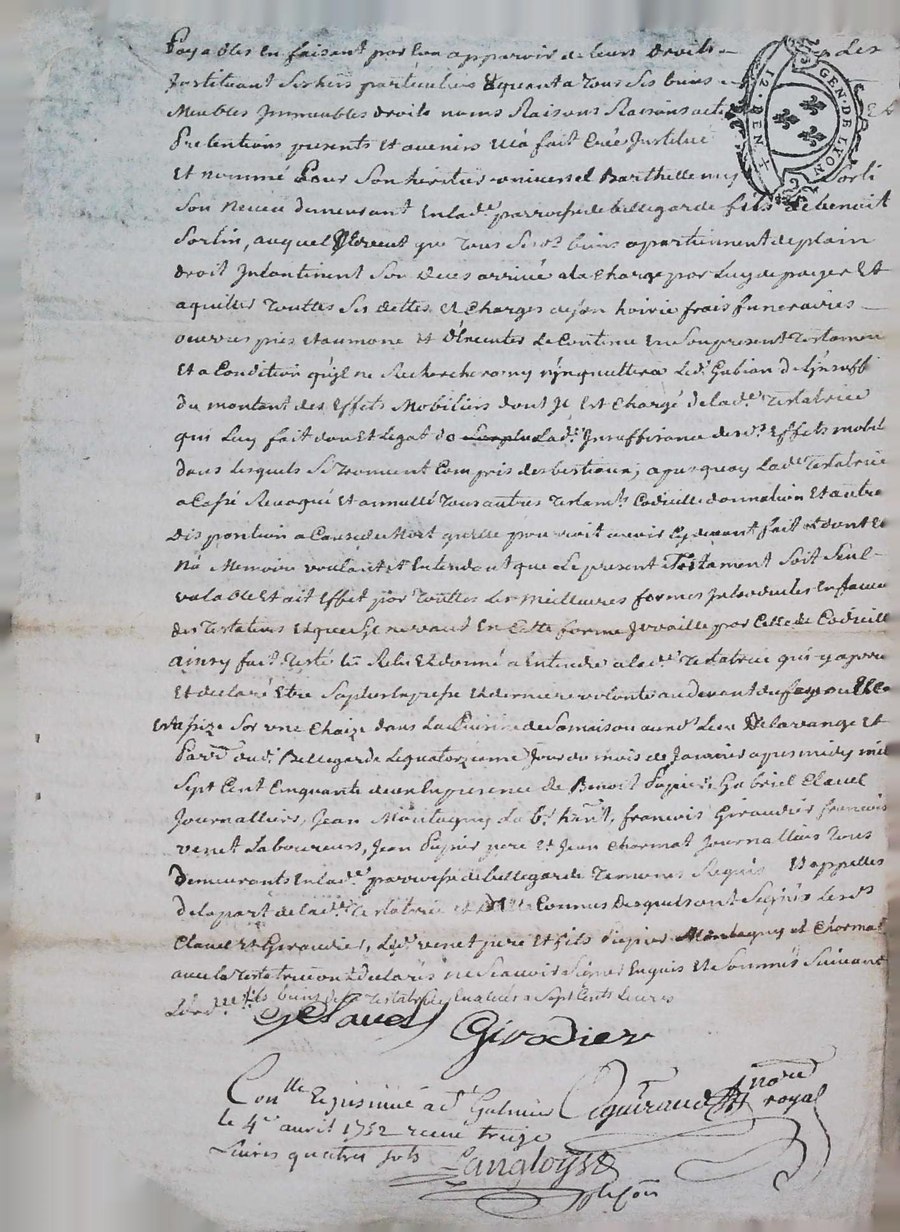 Payables en faisant par eux apparoir de leurs droits les
Jnstituant ses hers particuliers & quant a tous ses biens
Meubles Jmmeubles droits noms Raisons Et
Pretentions presents et avenirs creé Jnstitué
et nommé pour son heritier universel Barthellemy Sorli
son neveu demeurant en lad.e parroisse de bellegarde fils de benoit
Sorlin, auquel que tous ses d.s biens apartiennent de plain
droit Jncontinent son deces arrivé a la charge par luy de payer et
aquitter touttes ses dettes et charges de son hoirie frais funeraires
œuvres pies et aumone et d'executer le contenu en son present testamen
et a condition qu'il ne recherchera ny n'inquiettera led. Gubian de l'insuffi
du montant des effets mobiliers dont Jl est chargé de lad.e testatrice
qui luy fait don et legat de lad. Jnsuffisance desd.s effets mobil
dans lesquels se trouvent compris des bestiaux, apres quoy lad.e testatrice
a cassé Revoqué et annullé tous autres testam.ts codicille donnation et autre
disposition a cause de mort qu'elle pourroit avoir cy devant fait et dont el
na memoire voulant et entendant que le present testament soit seul
valable et ait effet par touttes les meilleures formes Jntroduites en faveur
des testateurs et que s'il ne vaut en cette forme Jl vaille par celle de codicill
ainsy fait testé lû Relu et donné a entendre a lad.e testatrice qui y a persi
et declaré etre sa plus expresse et derniere volonté au devant du feu ou elle
etoit assize sur une chaize dans la cuisine de sa maison aud. lieu de lavange et
parr.e dud. Bellegarde le quatorzieme jour du mois de Janvier apres midy mil
sept cent cinquante deux en la presence de Benoit Pupier, Gabriel Clavel
Journalliers, Jean Montagny la b.r hab.t, francois Giraudier francois
venet Laboureurs, Jean Pupier pere et Jean Charmat Journalliers tous
demeurants en lad.e parroisse de bellegarde temoins Requis et appelles
de la part de lad.e testatrice et connus desquels ont signés lesd.s
Clavel et Giraudier, led. venet pere et fils Pupier Montagny et Charmat
avec la testatrice ont declarés ne sçavoir signer enquis et sommés suivant
l'ord.ce les biens de la testatrice evalués a sept cents livres
GClavel Girodier
Con.lle et jnsinué a S.t Galmier royal
le 4.e avril 1752 receu treize
Livres quatre sols Langloys
12. DEN
GEN. DE LYON